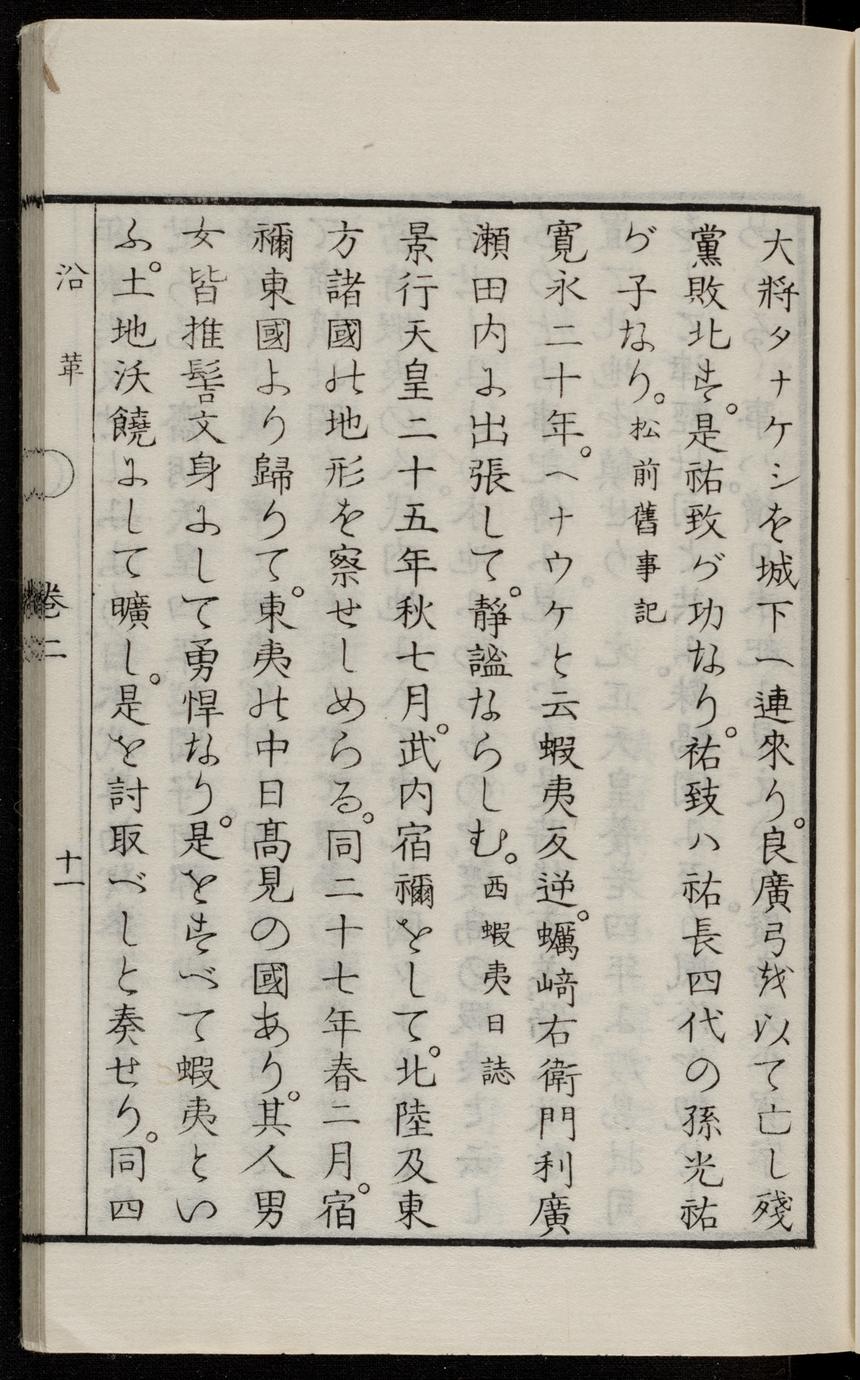 大將タナケシを城下へ連來り。良廣弓を以て亡し殘
黨敗北す。是祐致が功なり。祐致ハ祐長四代の孫光祐
が子なり。松前舊事記
寛永二十年。ヘナウケと云蝦夷反逆。蠣﨑右衛門利廣
瀬田内に出張して。靜謐ならしむ。西蝦夷日誌
景行天皇二十五年秋七月。武内宿禰をして。北陸及東
方諸國の地形を察せしめらる。同二十七年春二月。宿
禰東國より歸りて。東夷の中日髙見の國あり。其人男
女皆推髻文身にして勇悍なり。是をすべて蝦夷とい
ふ。土地沃饒にして曠し。是を討取べしと奏せり。同四
沿革
卷二
十一